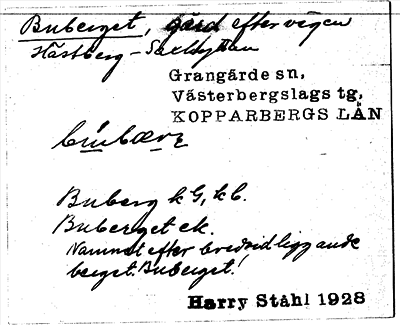 Buberget, gård efter vägen
Hästberg - Saxhyttan
Grangärde sn,
Västerbergslags tg,
KOPPARBERGS LÄN
Buberg k G, k b.
Buberget ek.
Namnet efter bredvid liggande
berget. Buberget!
Harry Ståhl 1928